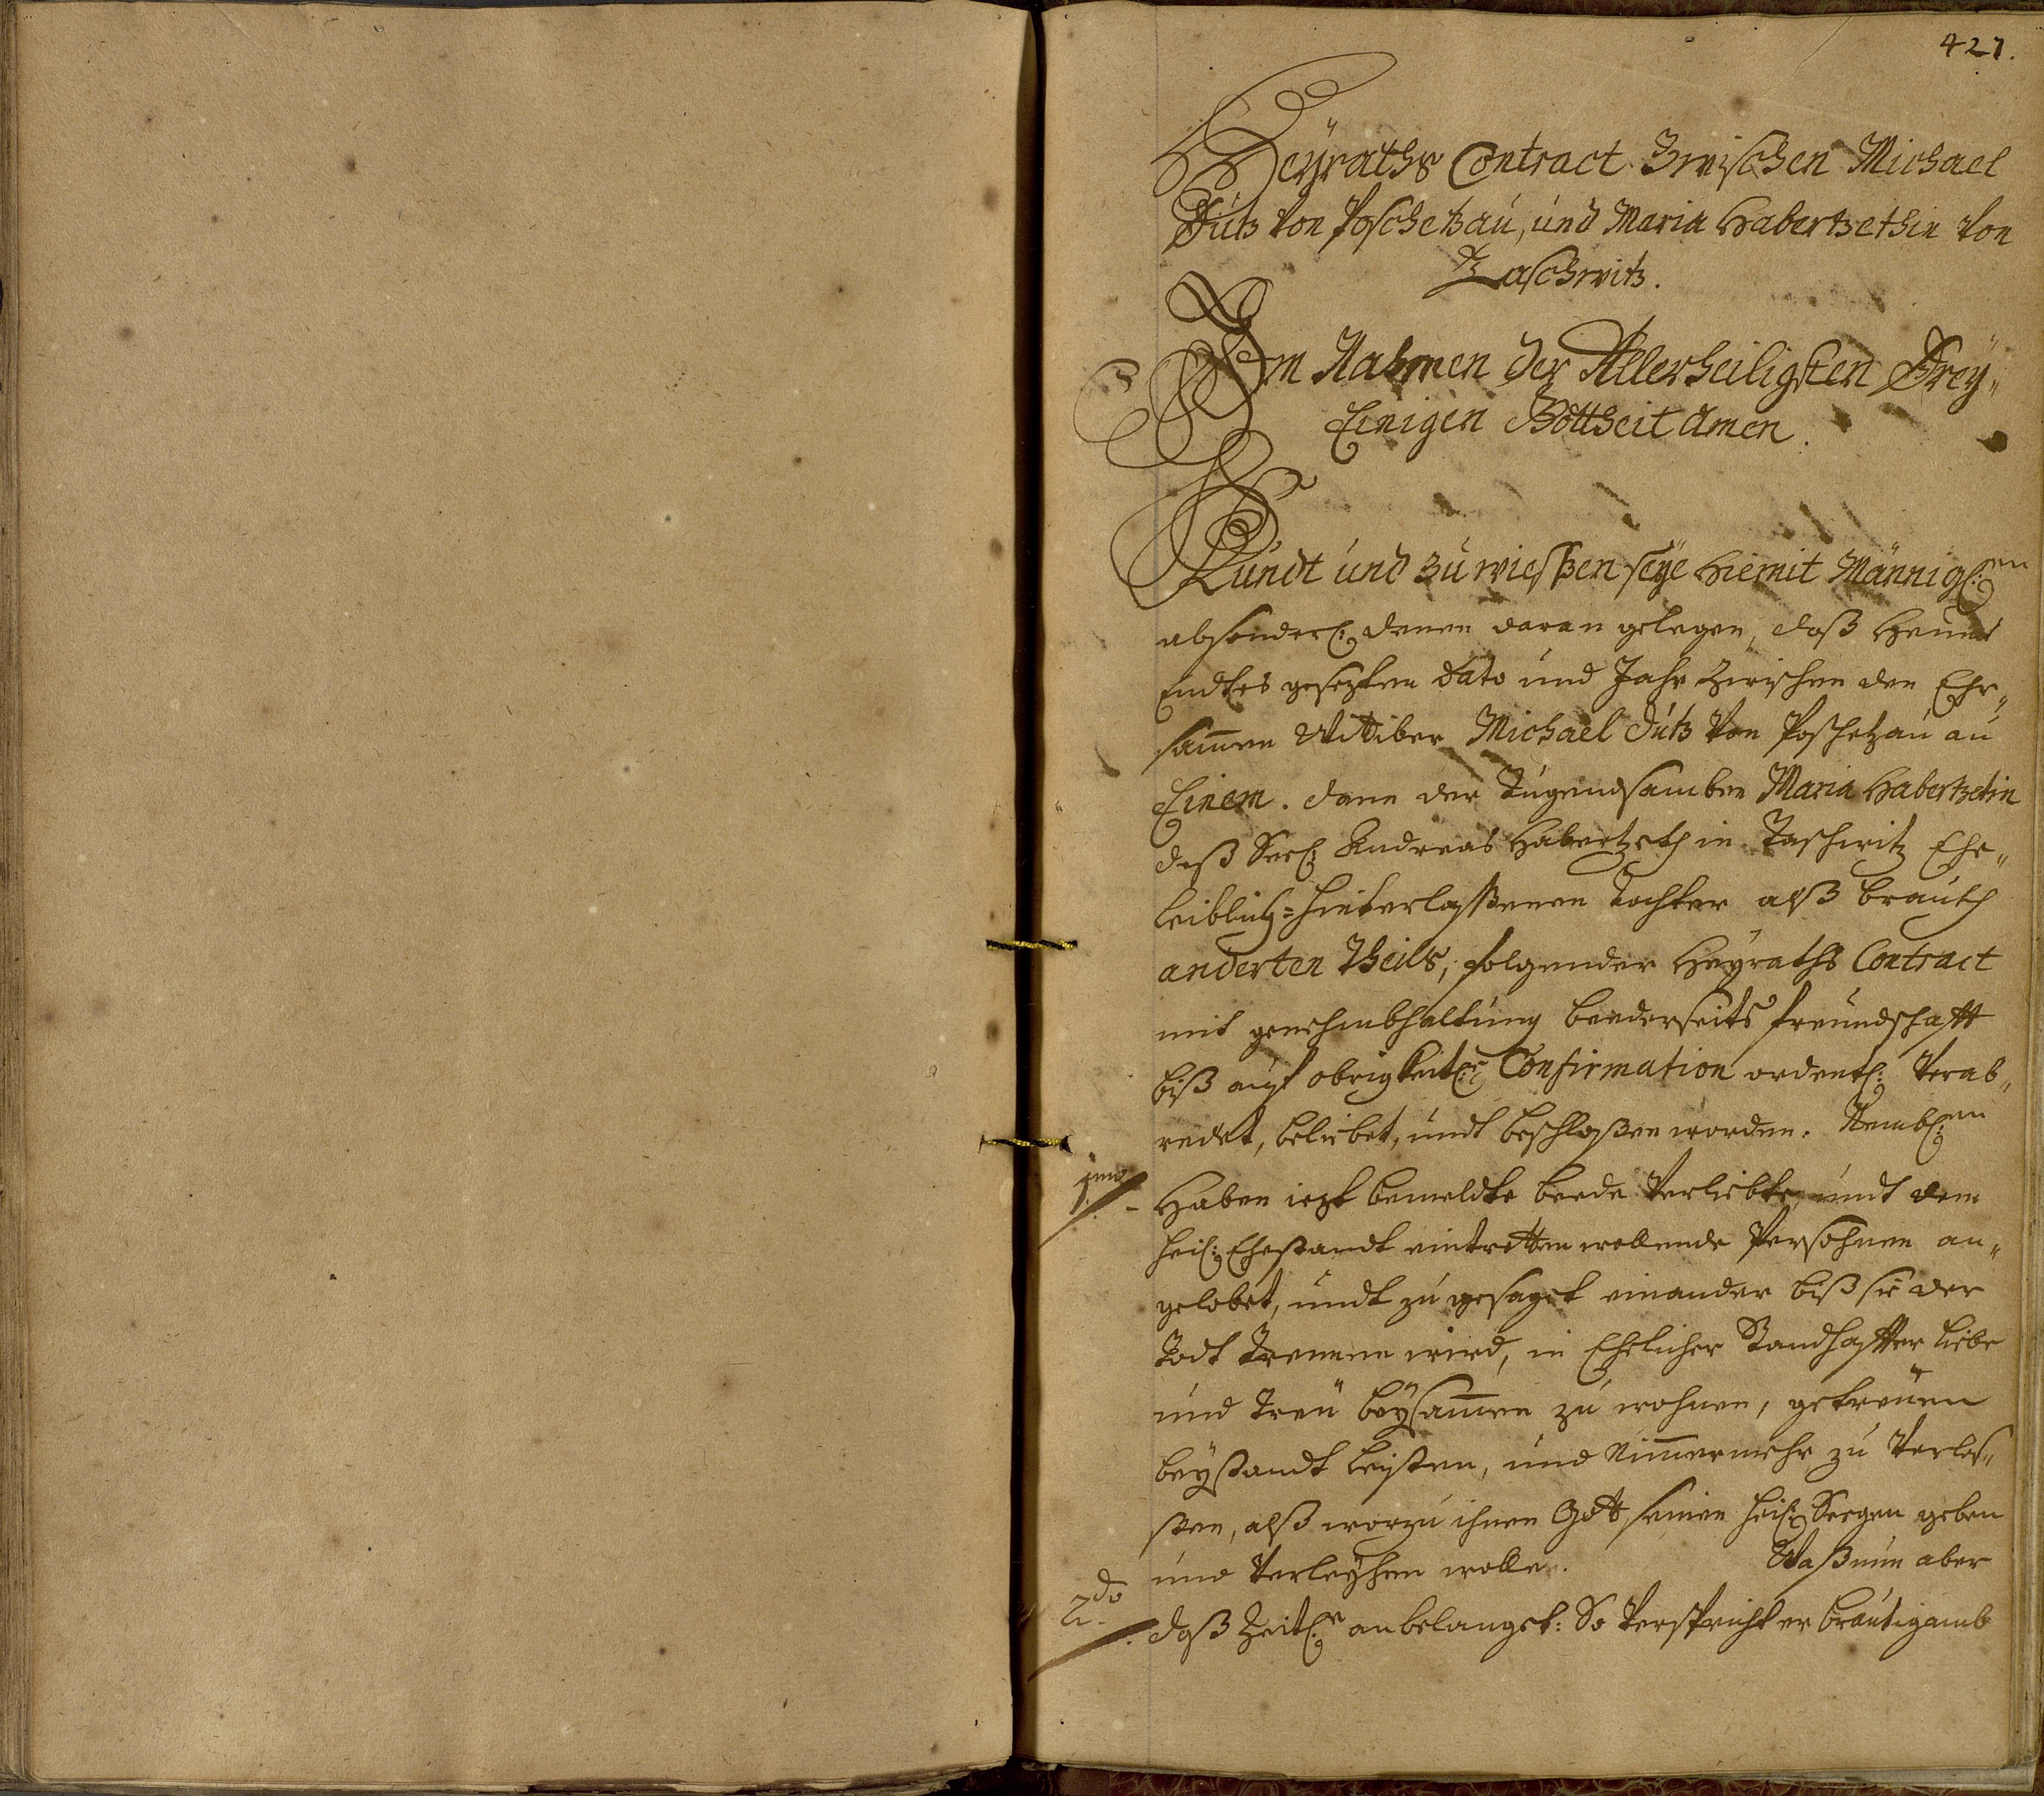 427.
Heÿraths Contract Zwischen Michael
Dutz von Poschetzau, und Maria Habertzethin von
Taschwitz.
Im Nahmen der Allerheiligsten Dreÿ„
Einigen Gottheit Amen.
Kundt und zu wießen seÿe hiemit Männigl:en
absonderl: denen daran gelegen, daß Heundt
Endtes gesezten dato und Jahr Zwischen den Ehr„
samen Wittiber Michael Dutz von Poschetzau an
Einem. dann der Tugendsamben Maria Habertzetin
deß Seel: Andreas Habertzeth in Taschwitz Ehe„
leiblich=hinterlaßenen Tochter alß brauth
anderten Theils, folgender Heÿraths Contract
mit genehmbhaltung beederseits freundschafft
biß auf obrigkeitl:er Confirmation ordentl: verab„
redet, beliebet, undt beschloßen worden. Nembl:en
1mo
Haben iezt bemeldte beede Verliebte, undt dem
heil: Ehestandt eintretten wollende Persohnen an„
gelobet, undt zu gesaget einander biß sie der
Todt Trennen wird, in Ehelicher Standhaffter liebe
und Treu beÿsamen zu wohnen, getreuen
beÿstandt leisten, und Nimermehr zu verlas„
sen, alß worzu ihnen Gott seinen heil: Seegen geben
und verleÿhen wolle. Waß nun aber
2do
daß Zeitl:e anbelanget: So verspricht er bräutigamb